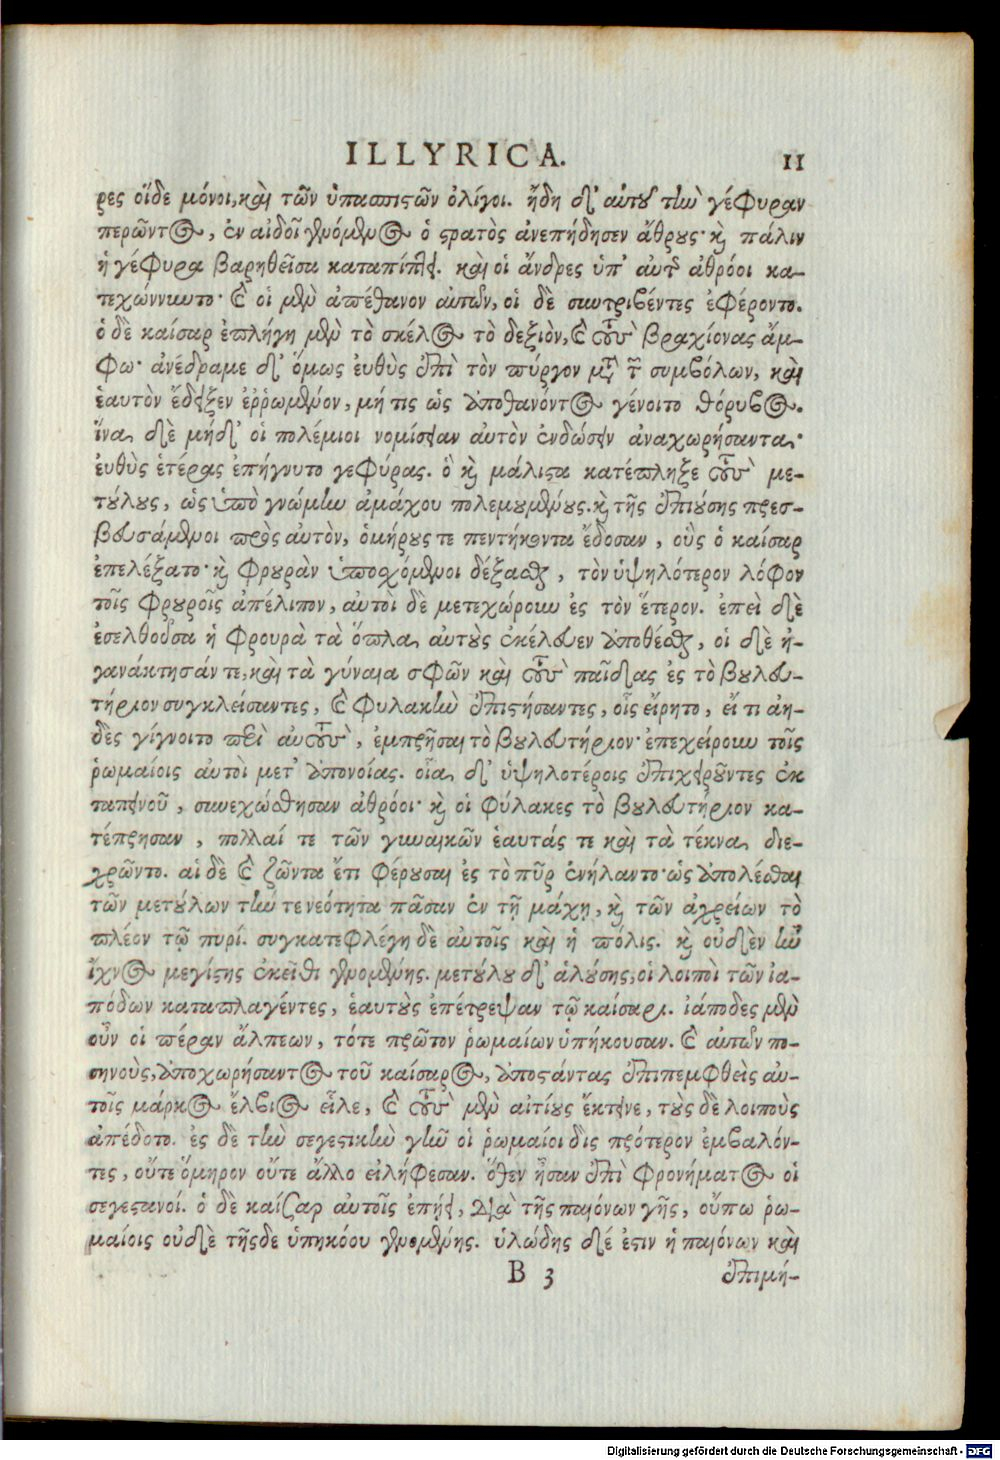 ILLYRICA. 11
ρες οἵδε μόνοι, καὶ τῶν ὑπασπιστῶν ὀλίγοι. ἤδη δ' αὐτοῦ τὴν γέφυραν
περῶντος, ἐν αἰδοῖ γενόμενος ὁ στρατὸς ἀνεπήδησεν ἄθρους· καὶ πάλιν
ἡ γέφυρα βαρηθεῖσα καταπίπτει. καὶ οἱ ἄνδρες ὑπ' αὐτῇ ἀθρόοι κα-
τεχώννυντο· καὶ οἱ μὲν ἀπέθανον αὐτῶν, οἱ δὲ συντριβέντες ἐφέροντο.
ὁ δὲ καίσαρ ἐπλήγη μὲν τὸ σκέλος τὸ δεξιὸν, καὶ τοὺς βραχίονας ἄμ-
φω· ἀνέδραμε δ' ὅμως εὐθὺς ἐπὶ τὸν πύργον μετὰ τῶν συμβόλων, καὶ
ἑαυτὸν ἔδειξεν ἐῤῥωμένον, μή τις ὡς ἀποθανόντος γένοιτο θόρυβος.
ἵνα δὲ μήδ' οἱ πολέμιοι νομίσειαν αὐτὸν ἐνδώσειν ἀναχωρήσαντα·
εὐθὺς ἑτέρας ἐπήγνυτο γεφύρας. ὃ καὶ μάλιστα κατέπληξε τοὺς με-
τούλους, ὡς ὑπὸ γνώμην ἀμάχου πολεμουμένους. καὶ τῆς ἐπιούσης πρεσ-
βευσάμενοι πρὸς αὐτὸν, ὁμήρους τε πεντήκοντα ἔδοσαν, οὓς ὁ καίσαρ
ἐπελέξατο· καὶ φρουρὰν ὑποσχόμενοι δέξασθαι, τὸν ὑψηλότερον λόφον
τοῖς φρουροῖς ἀπέλιπον, αὐτοὶ δὲ μετεχώρουν ἐς τὸν ἕτερον. ἐπεὶ δὲ
ἐσελθοῦσα ἡ φρουρὰ τὰ ὅπλα αὐτοὺς ἐκέλευεν ἀποθέσθαι, οἱ δὲ ἠ-
γανάκτησάν τε, καὶ τὰ γύναια σφῶν καὶ τοὺς παῖδας ἐς τὸ βουλευ-
τήριον συγκλείσαντες, καὶ φυλακὴν ἐπιστήσαντες, οἷς εἴρητο, εἴ τι ἀη-
δὲς γίγνοιτο περὶ αὐτοὺς, ἐμπρῆσαι τὸ βουλευτήριον· ἐπεχείρουν τοῖς
ῥωμαίοις αὐτοὶ μετ' ἀπονοίας. οἷα δ' ὑψηλοτέροις ἐπιχειροῦντες ἐκ
ταπεινοῦ, συνεχώσθησαν ἀθρόοι· καὶ οἱ φύλακες τὸ βουλευτήριον κα-
τέπρησαν, πολλαί τε τῶν γυναικῶν ἑαυτάς τε καὶ τὰ τέκνα διε-
χρῶντο. αἱ δὲ καὶ ζῶντα ἔτι φέρουσαι ἐς τὸ πῦρ ἐνήλαντο· ὡς ἀπολέσθαι
τῶν μετούλων τήν τε νεότητα πᾶσαν ἐν τῇ μάχῃ, καὶ τῶν ἀχρείων τὸ
πλέον τῷ πυρί. συγκατεφλέγη δὲ αὐτοῖς καὶ ἡ πόλις. καὶ οὐδὲν ἦν
ἴχνος μεγίστης ἐκεῖθι γενομένης. μετούλου δ' ἁλούσης, οἱ λοιποὶ τῶν ἰα-
πόδων καταπλαγέντες, ἑαυτοὺς ἐπέτρεψαν τῷ καίσαρι. ἰάποδες μὲν
οὖν οἱ πέραν ἄλπεων, τότε πρῶτον ῥωμαίων ὑπήκουσαν. καὶ αὐτῶν πο-
σηνοὺς, ἀποχωρήσαντος τοῦ καίσαρος, ἀποστάντας ἐπιπεμφθεὶς αὐ-
τοῖς μάρκος ἔλβιος εἷλε, καὶ τοὺς μὲν αἰτίους ἔκτεινε, τοὺς δὲ λοιποὺς
ἀπέδοτο. ἐς δὲ τὴν σεγεστικὴν γῆν οἱ ῥωμαίοι δὶς πρότερον ἐμβαλόν-
τες, οὔτε ὅμηρον οὔτε ἄλλο εἰλήφεσαν. ὅθεν ἦσαν ἐπὶ φρονήματος οἱ
σεγεστανοί. ὁ δὲ καίσαρ αὐτοῖς ἐπῄει, διὰ τῆς παιόνων γῆς, οὔπω ῥω-
μαίοις οὐδὲ τῆσδε ὑπηκόου γενομένης. ὑλώδης δέ ἐστιν ἡ παιόνων καὶ
B 3 ἐπιμή-
Digitalisierung gefördert durch die Deutsche Forschungsgemeinschaft - DFG